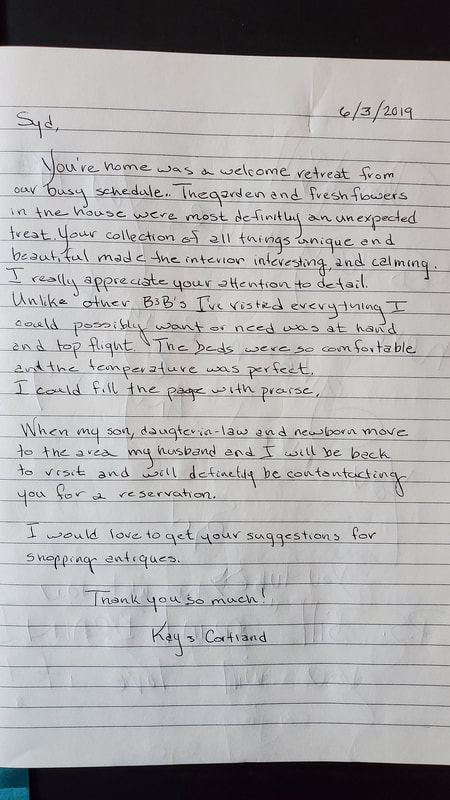 6/3/2019
Syd,
You're home was a welcome retreat from
our busy schedule.. The garden and fresh flowers
in the house were most definitly an unexpected
treat. Your collection of all things unique and
beautiful made the interior interesting and calming.
I really appreciate your attention to detail.
Unlike other B&B's I've visited everything I
could possibly want or need was at hand
and top flight. The beds were so comfortable
and the temperature was perfect.
I could fill the page with praise.
When my son, daugter-in-law and newborn move
to the area my husband and I will be back
to visit and will definetly be contontacting
you for a reservation.
I would love to get your suggestions for
shopping antiques.
Thank you so much!
Kay & Cortland